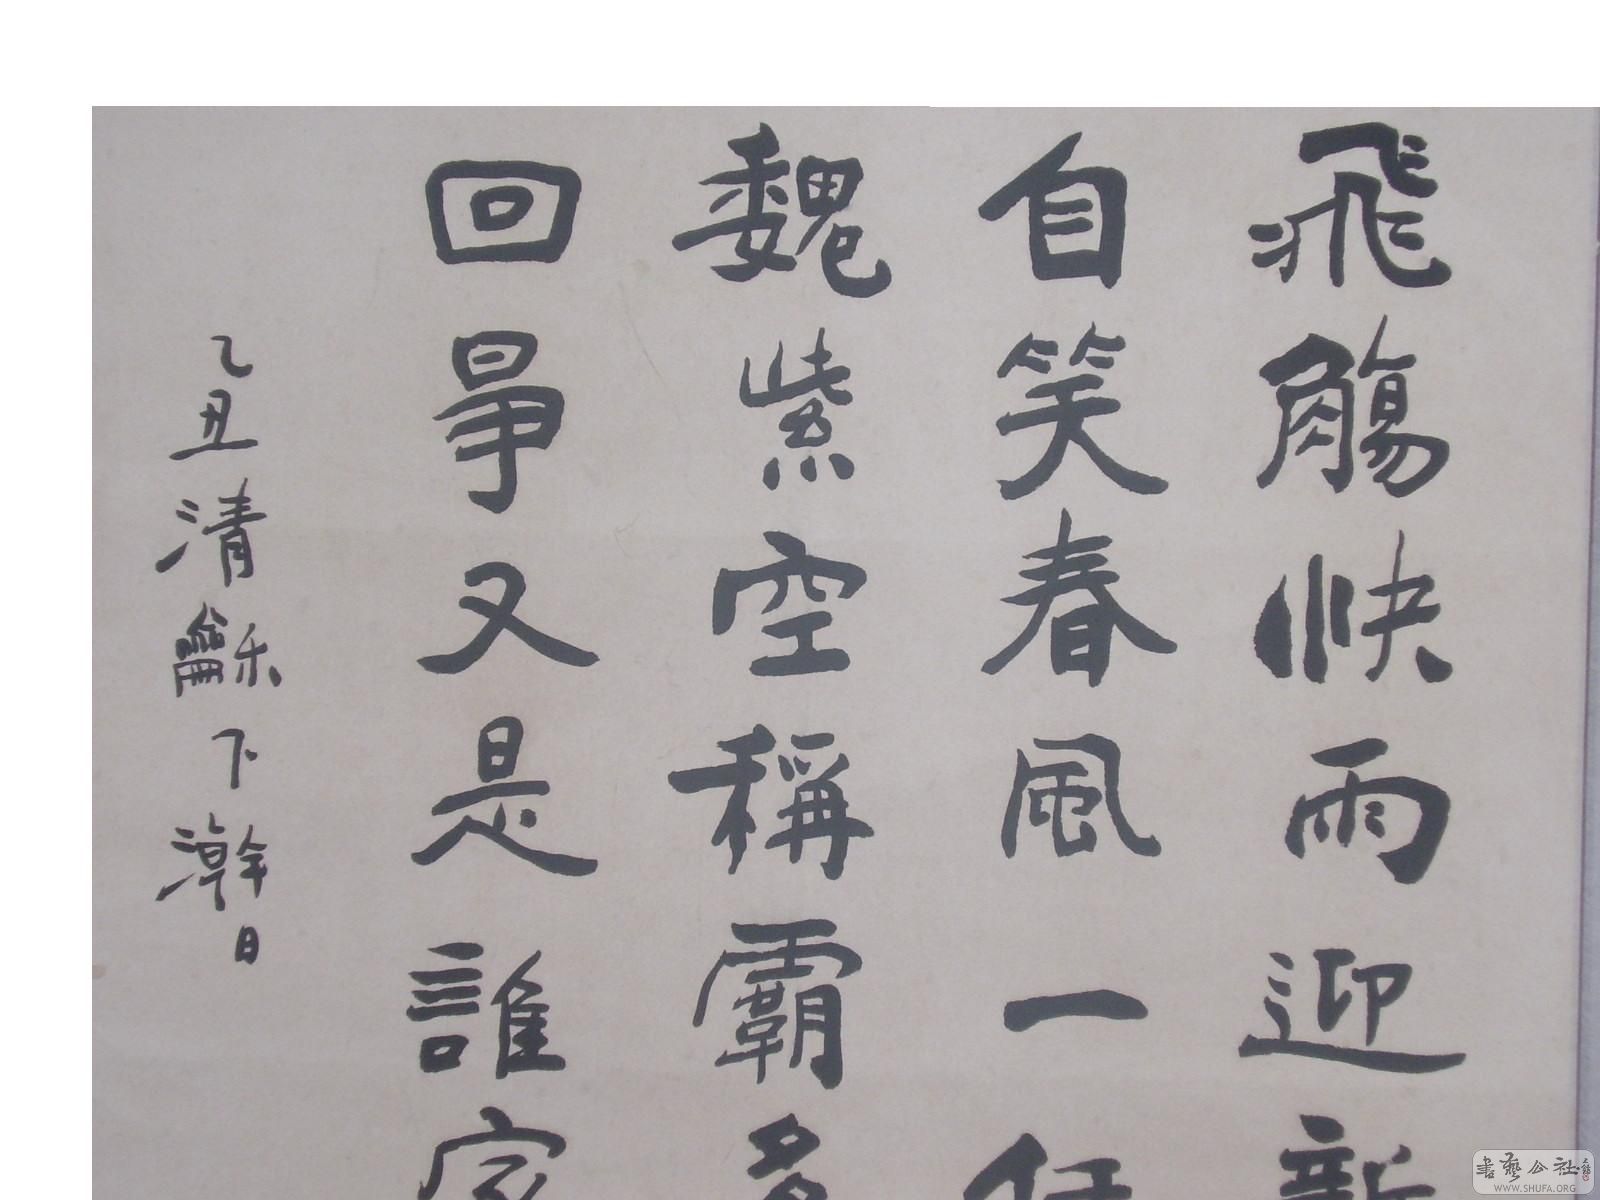 飛觴快雨迎新
自笑春風一任
魏紫空稱霸
回首又是誰家
乙丑清龢下澣日
書藝公社
WWW.SHUFA.ORG